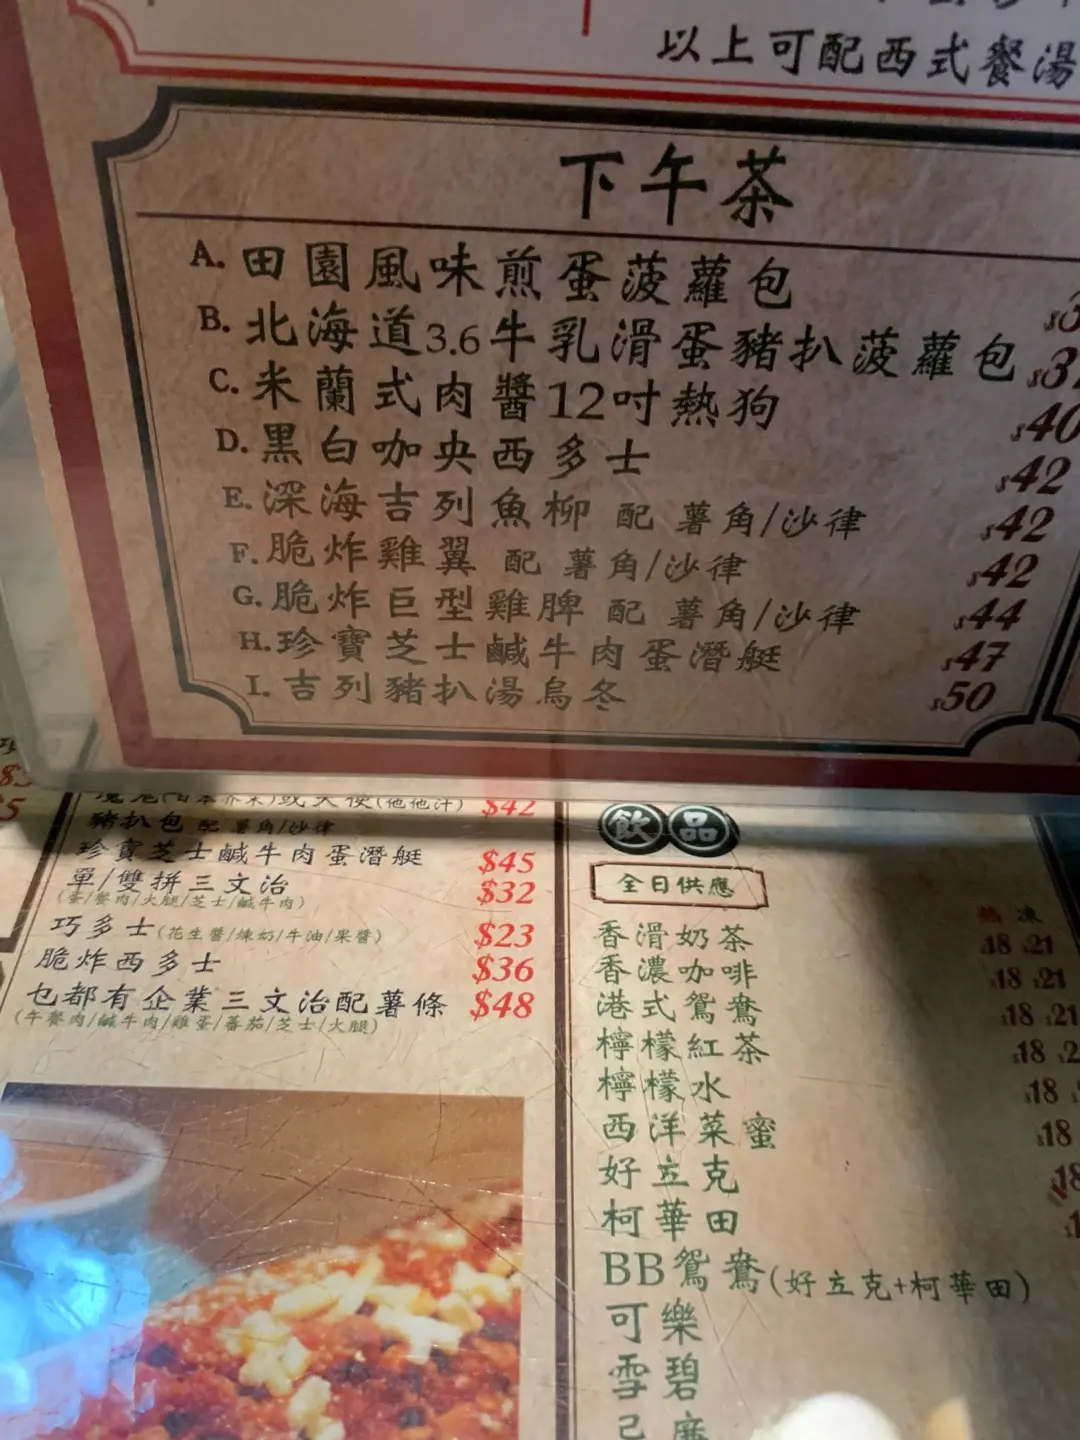 以上可配西式餐湯
下午茶
A. 田園風味煎蛋菠蘿包
B. 北海道3.6牛乳滑蛋豬扒菠蘿包
C. 米蘭式肉醬12吋熱狗 $40
D. 黑白咖央西多士 $42
E. 深海吉列魚柳 配 薯角/沙律 $42
F. 脆炸雞翼 配 薯角/沙律 $42
G. 脆炸巨型雞脾 配 薯角/沙律 $44
H. 珍寶芝士鹹牛肉蛋潛艇 $47
I. 吉列豬扒湯烏冬 $50
$42
豬扒包 配 薯角/沙律
珍寶芝士鹹牛肉蛋潛艇 $45
單/雙拼三文治 $32
(蛋/餐肉/火腿/芝士/鹹牛肉)
巧多士(花生醬/煉奶/牛油/果醬) $23
脆炸西多士 $36
乜都有企業三文治配薯條 $48
(午餐肉/鹹牛肉/雞蛋/蕃茄/芝士/火腿)
飲品
全日供應
熱 凍
香滑奶茶 $18 $21
香濃咖啡 $18 $21
港式鴛鴦 $18 $21
檸檬紅茶 $18
檸檬水 $18
西洋菜蜜 $18
好立克
柯華田
BB鴛鴦(好立克+柯華田)
可樂
雪碧